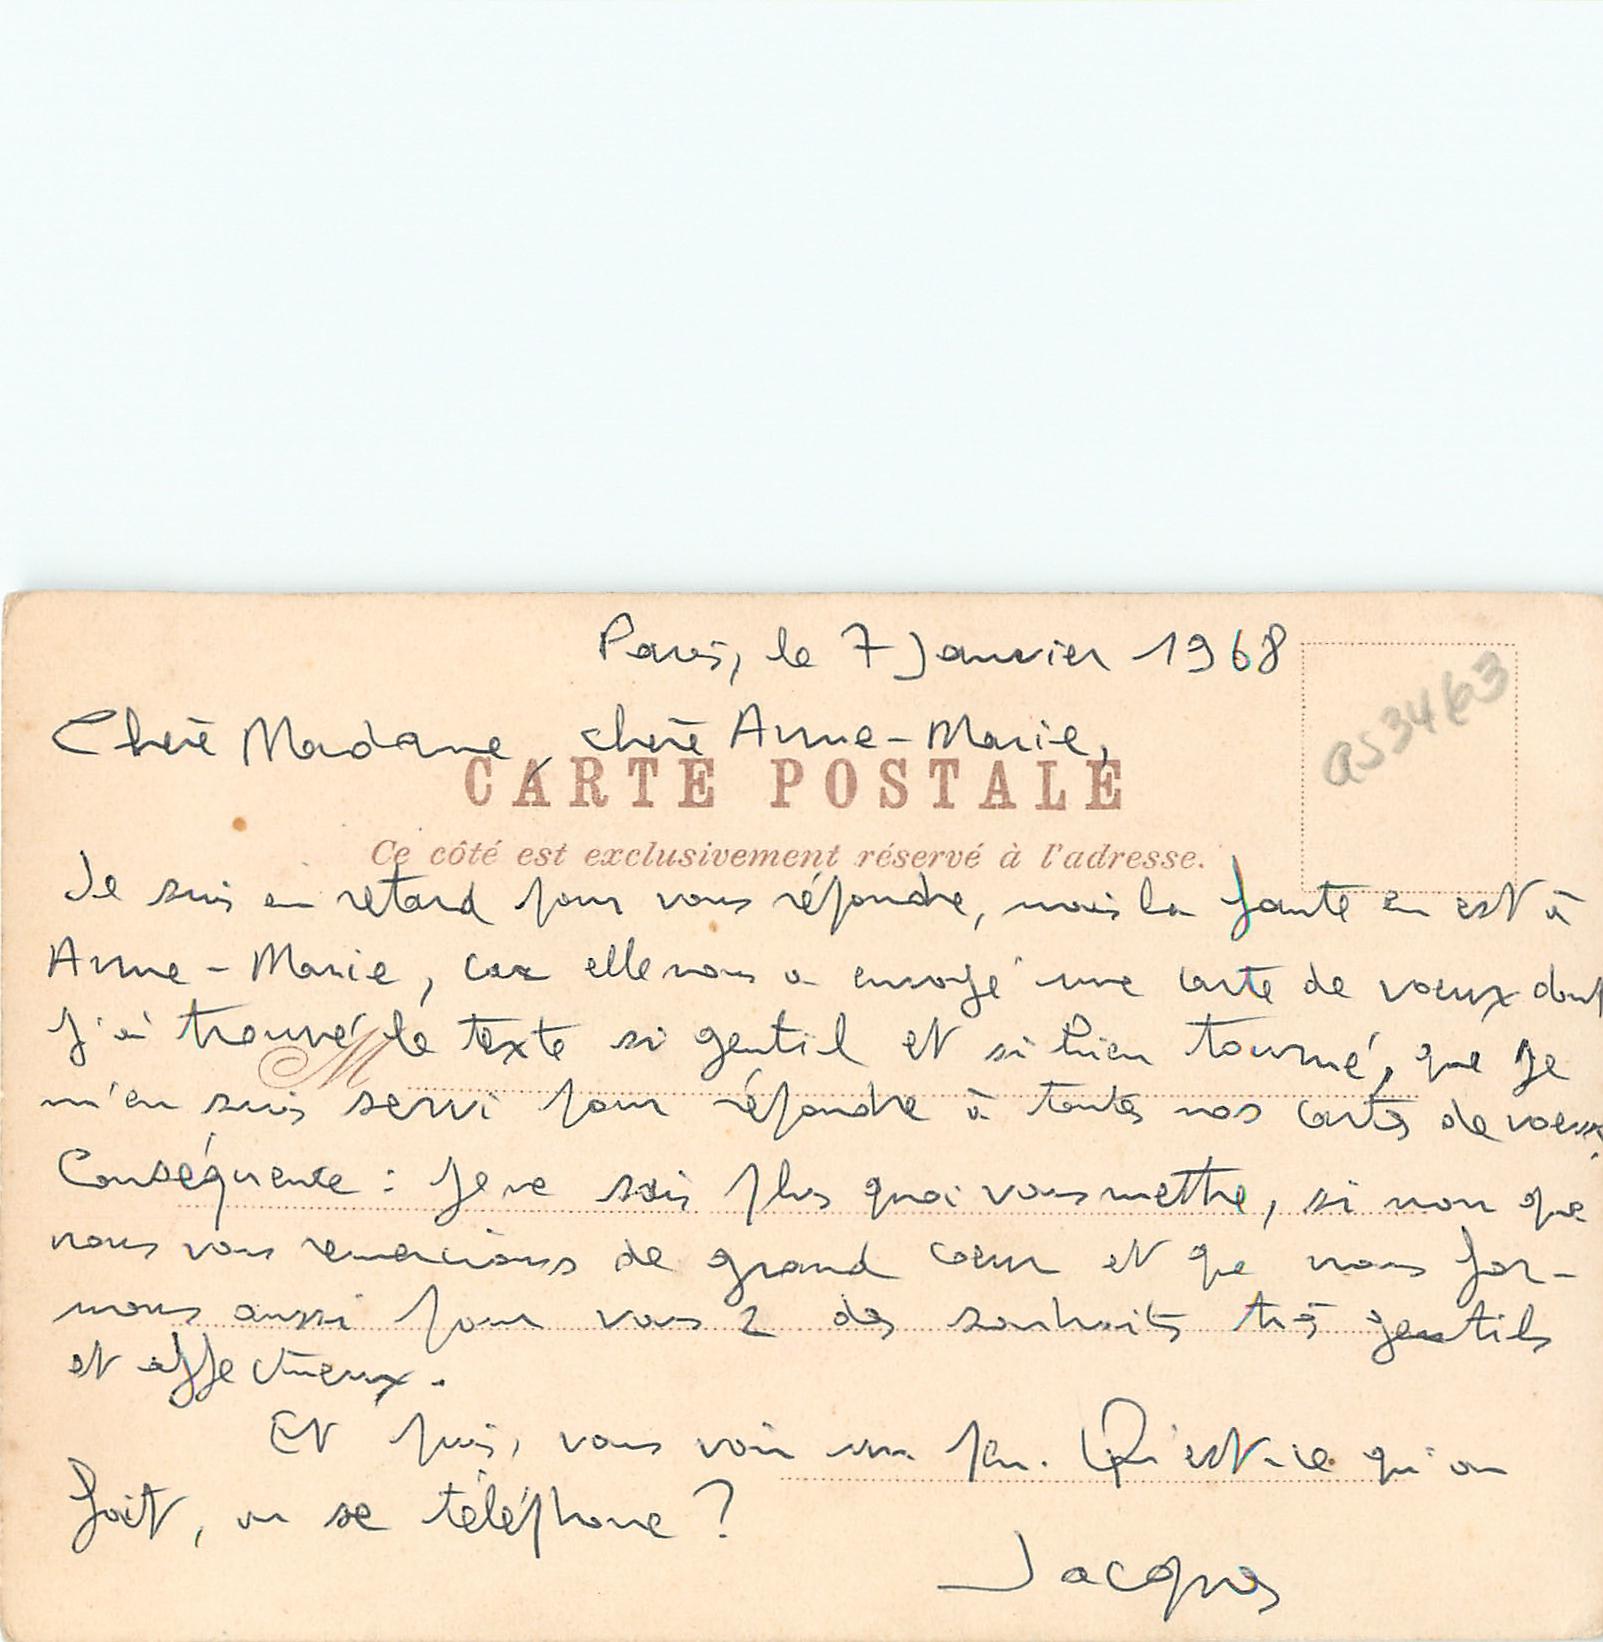 Paris, le 7 Janvier 1968
as3463
Chère Madame, chère Anne-Marie,
CARTE POSTALE
Ce côté est exclusivement réservé à l'adresse.
Je suis en retard pour vous répondre, mais la faute en est à
Anne-Marie, car elle nous a envoyé une carte de voeux dont
j'ai trouvé le texte si gentil et si bien tourné, que je
M
m'en suis servi pour répondre à toutes nos cartes de voeux.
Conséquence : je ne sais plus quoi vous mettre, si non que
nous vous remercions de grand coeur et que nous for-
mons aussi pour vous 2 des souhaits très gentils
et affectueux.
Et puis, vous voir un peu. Qu'est-ce qu'on
fait, on se téléphone ?
Jacques